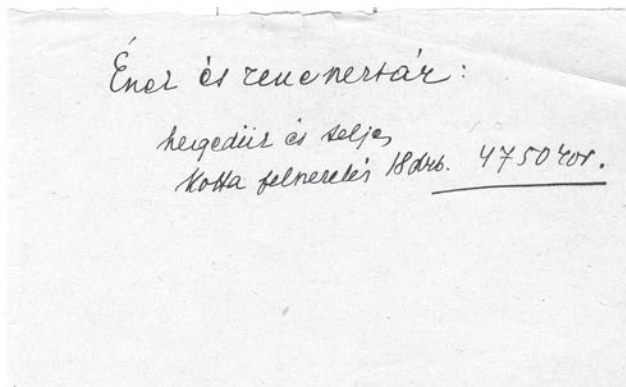 Ének és zenekertár:
hegedűk és teljes
Kotta felszerelés 18 drb. 4750 kor.